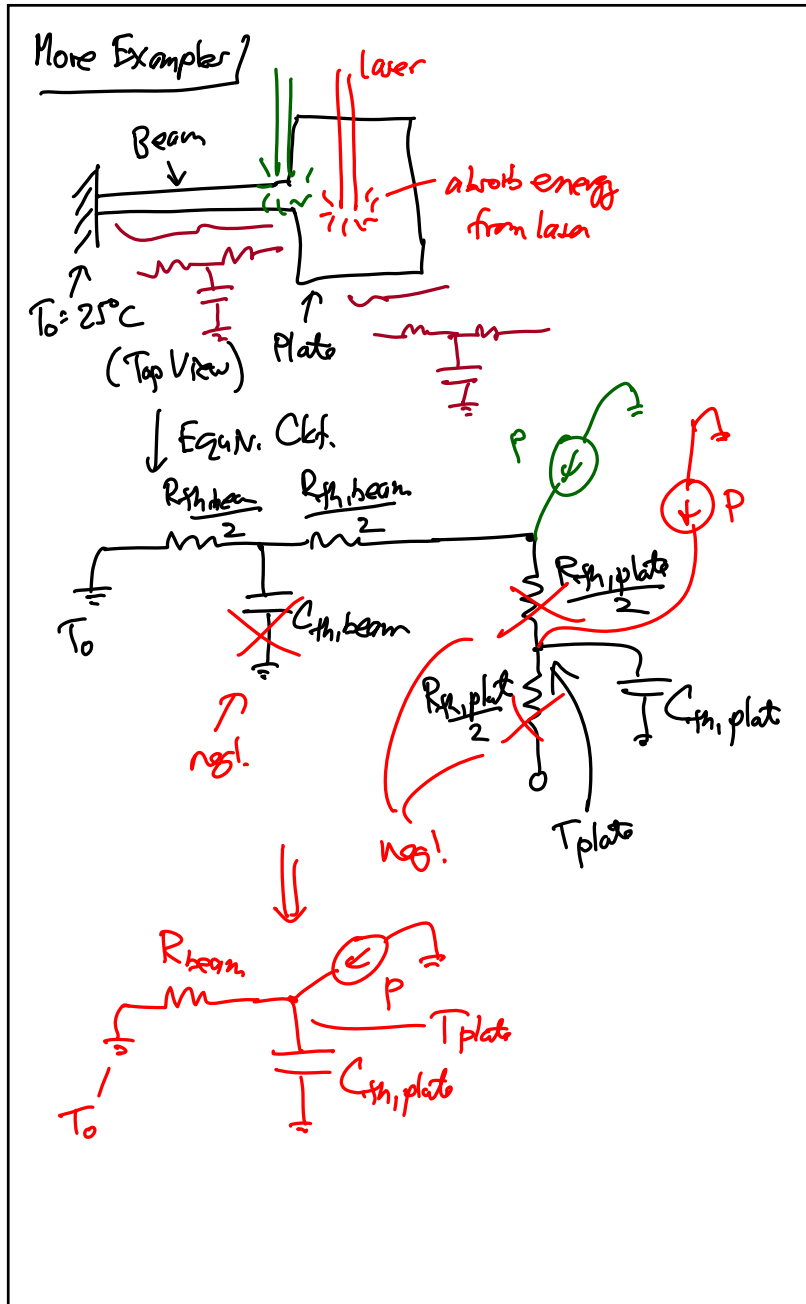 More Examples
laser
Beam
absorb energy
from laser
T₀ = 25°C
Plate
(Top View)
Equiv. Ckt.
P
P
Rth,beam/2
Rth,beam/2
Rth,plate/2
T₀
Cth,beam
Rth,plat/2
Cth,plat
neg!
neg!
Tplate
Rbeam
P
Tplate
Cth,plate
T₀